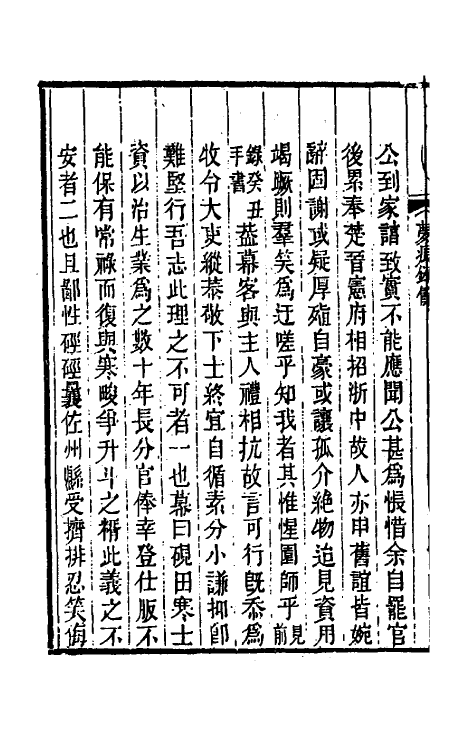 公到家諳致實不能應聞公甚爲悵惜余自罷官
後累奉楚晉憲府相招浙中故人亦申舊誼皆婉
辭固謝或疑厚殖自豪或讓孤介絶物迨見資用
竭蹶則羣笑爲迂嗟乎知我者其惟惺園師乎見前
錄癸丑手書葢幕客與主人禮相抗故言可行旣忝爲
牧令大吏縱恭敬下士終宜自循素分小謙抑卽
難堅行吾志此理之不可者一也幕曰硯田寒士
資以治生業爲之數十年長分官俸幸登仕版不
能保有常祿而復與寒畯爭升斗之糈此義之不
安者二也且鄙性硜硜曩佐州縣受擠排忍笑侮